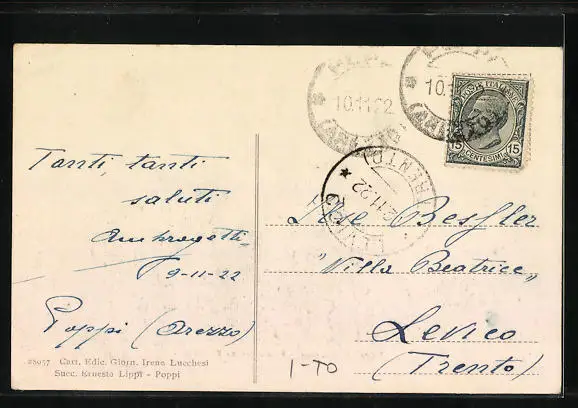 Tanti, tanti
saluti
Ambrogetti
9-11-22
Poppi (Arezzo)
28057 Cart. Edic. Giorn. Irene Lucchesi
Succ. Ernesto Lippi - Poppi
10.11.22
(AREZZO)
POSTE ITALIANE
15 CENTESIMI 15
LEVICO
(TRENTO)
12.11.22
Bessler
"Villa Beatrice"
Levico
(Trento)
1-TO